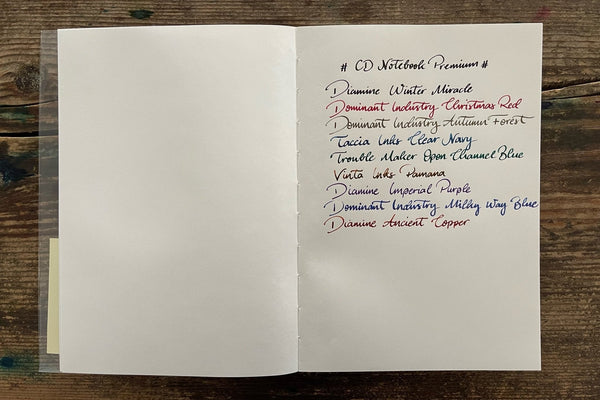 # CD Notebook Premium #
Diamine Winter Miracle
Dominant Industry Christmas Red
Dominant Industry Autumn Forest
Taccia Inks Clear Navy
Trouble Maker Open Channel Blue
Vinta Inks Pamana
Diamine Imperial Purple
Dominant Industry Milky Way Blue
Diamine Ancient Copper